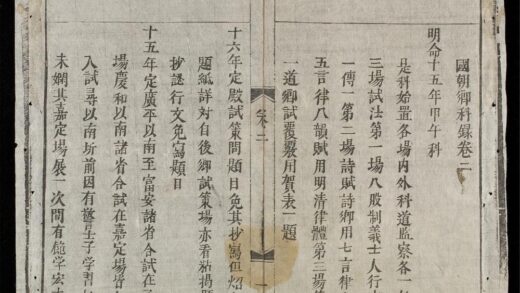 國朝鄉科錄卷二
明命十五年甲午科
是科始置各場內外科道監察各一
三場試法第一場八股制義士人行
一傳一第二場詩賦詩鄉用七言律
五言律八韻賦用明清律體第三場
一道鄉試覆覈用賀表一題
卷二
一
十六年定殿試策問題目免其抄寫但炤
題紙詳對自後鄉試策場亦看粘揭題
抄謄行文免寫題目
十五年定廣平以南至富安諸省合試在
場慶和以南諸省合試在嘉定場
入試尋以南圻前因有警士子學習
未嫻其嘉定場展一次間有學宏